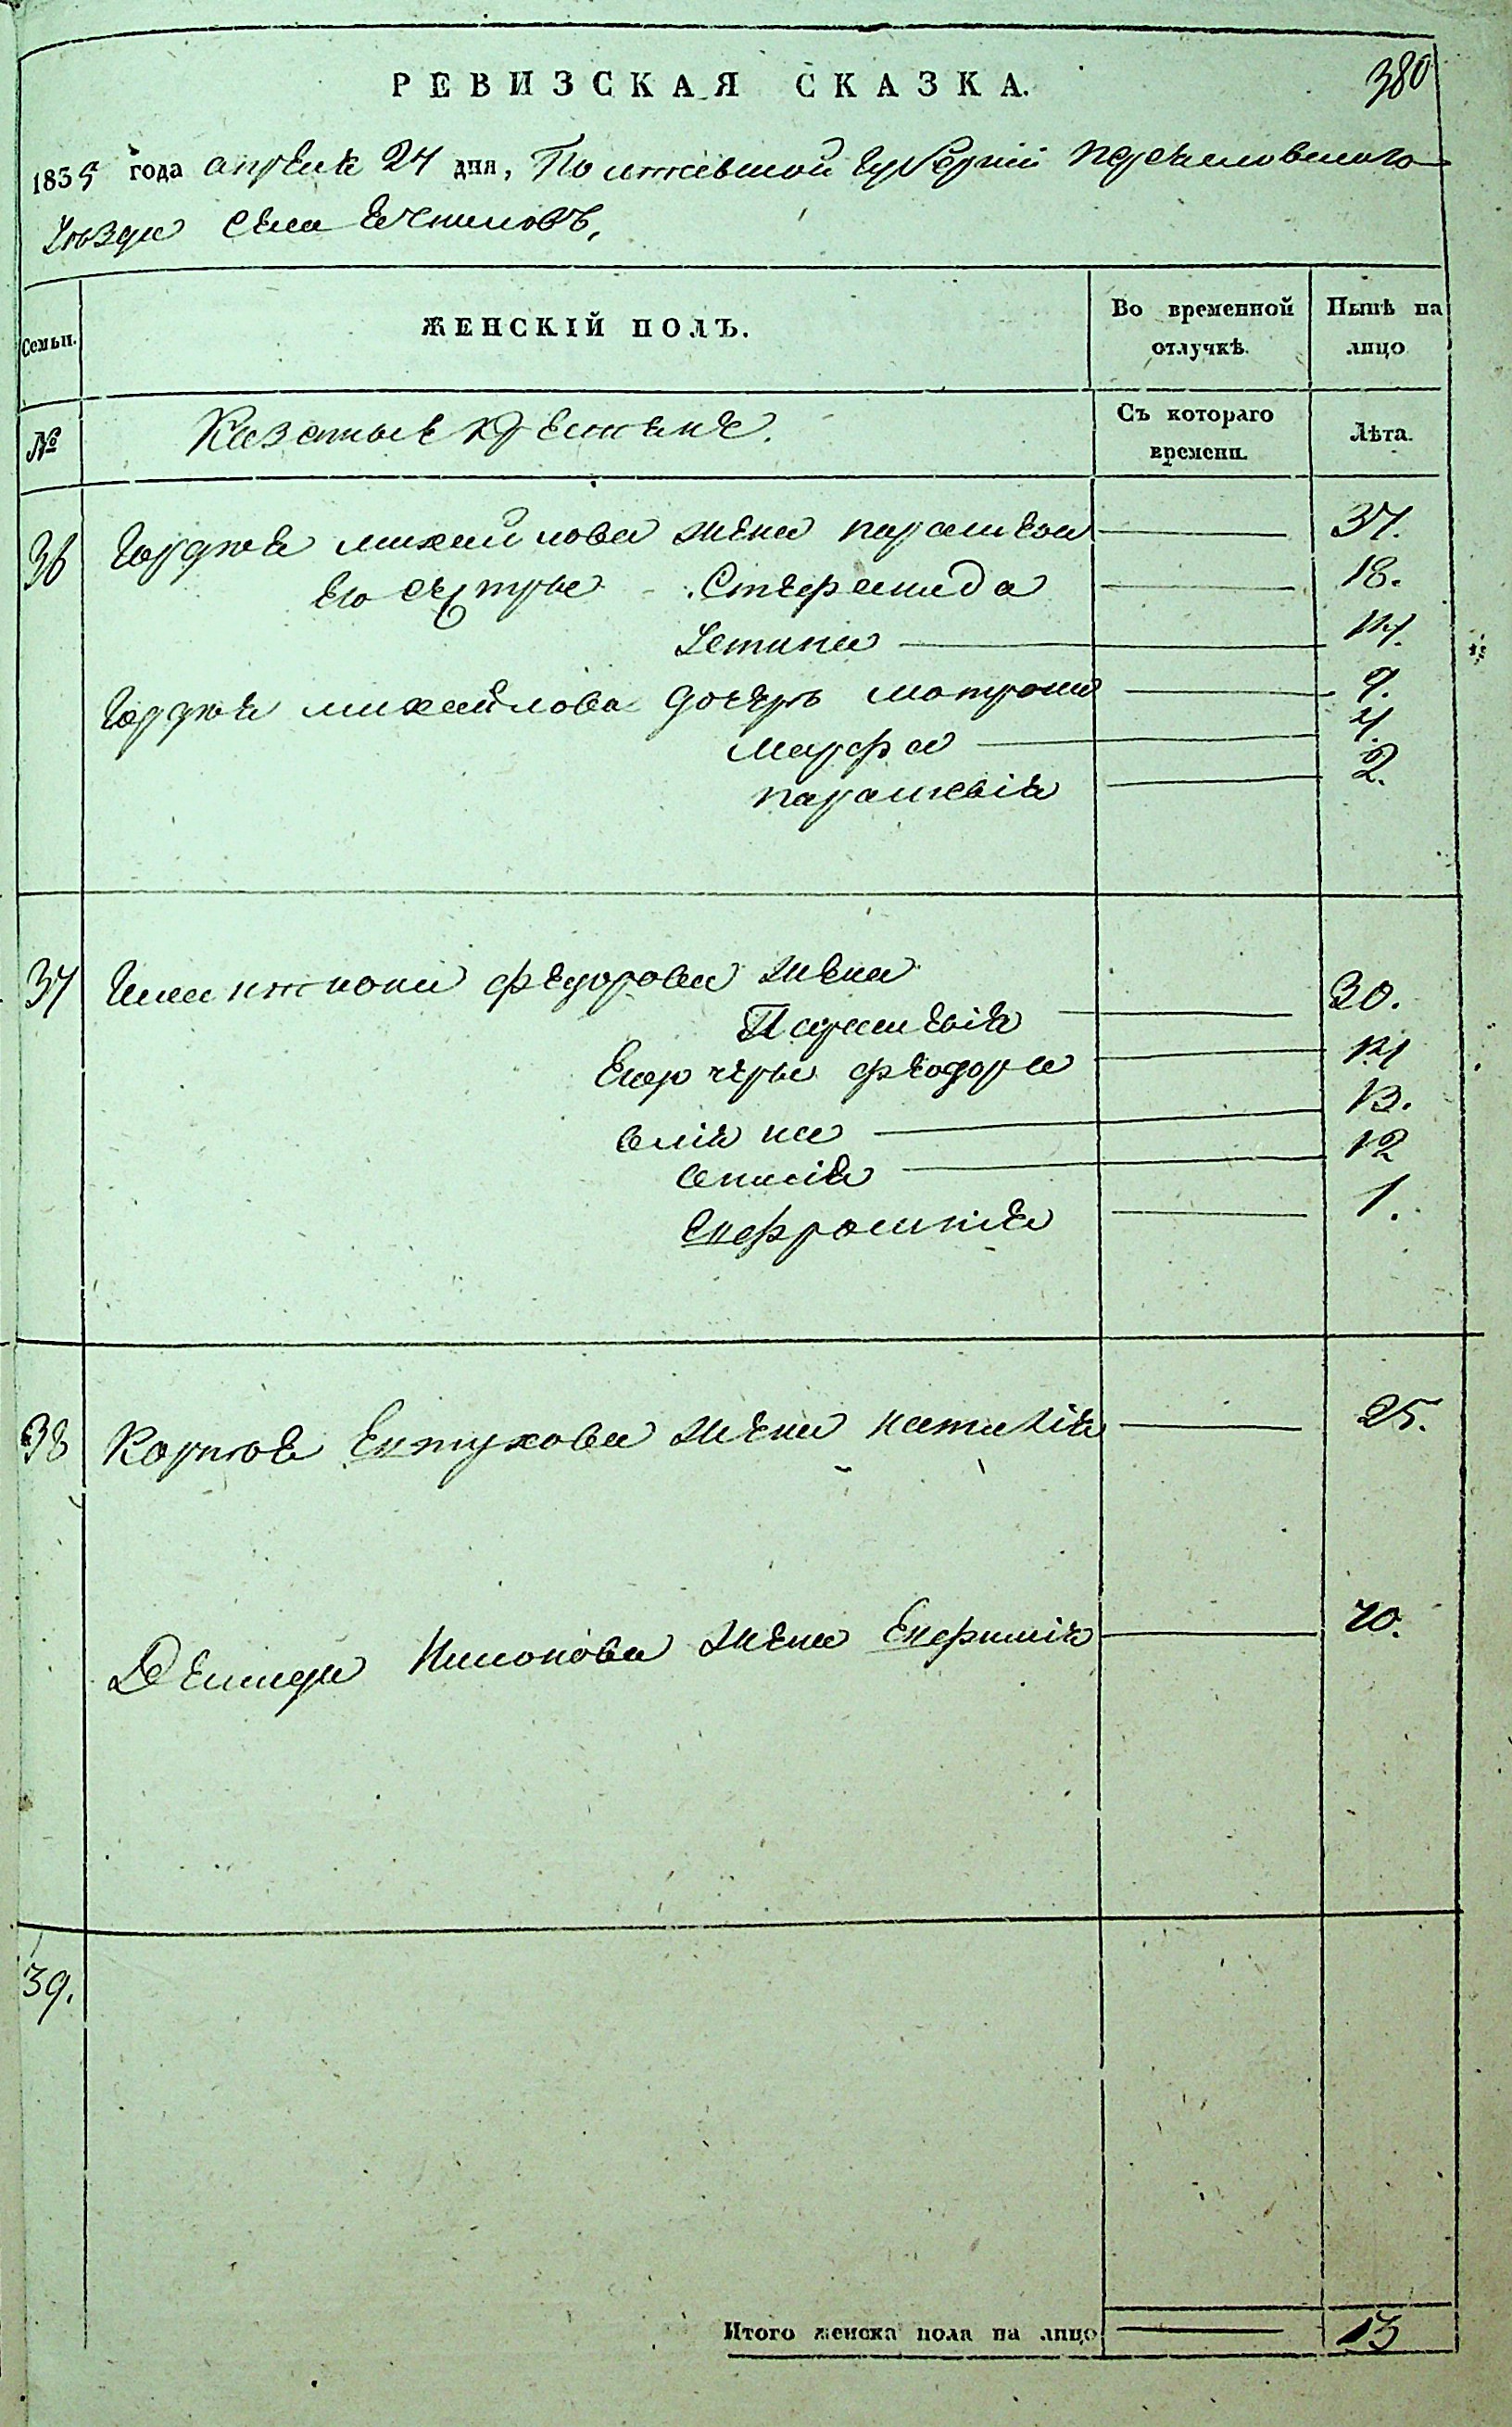 380
РЕВИЗСКАЯ СКАЗКА.
1835 года апреля 24 дня, Полтавской губернии Переяславского
уезда села
Семьи. ЖЕНСКІЙ ПОЛЪ. Во временной отлучкѣ. Нынѣ на лицо
№ Казенные крестьяне. Съ котораго времени. Лѣта.
36 Гордѣя михайлова жена параскева 37.
Его сестры Стефанида 18.
Устина 14.
Гордѣя михайлова дочерь мотрона 9.
марфа 4.
параскевія 2.
37 федорова жена
Параскевія 30.
Его дочеры феодора 14
13.
12
Ефросинія 1.
38 Карпова Евтухова жена наталія 25.
Демида жена Евфимія 70.
39.
Итого женска пола на лицо 13